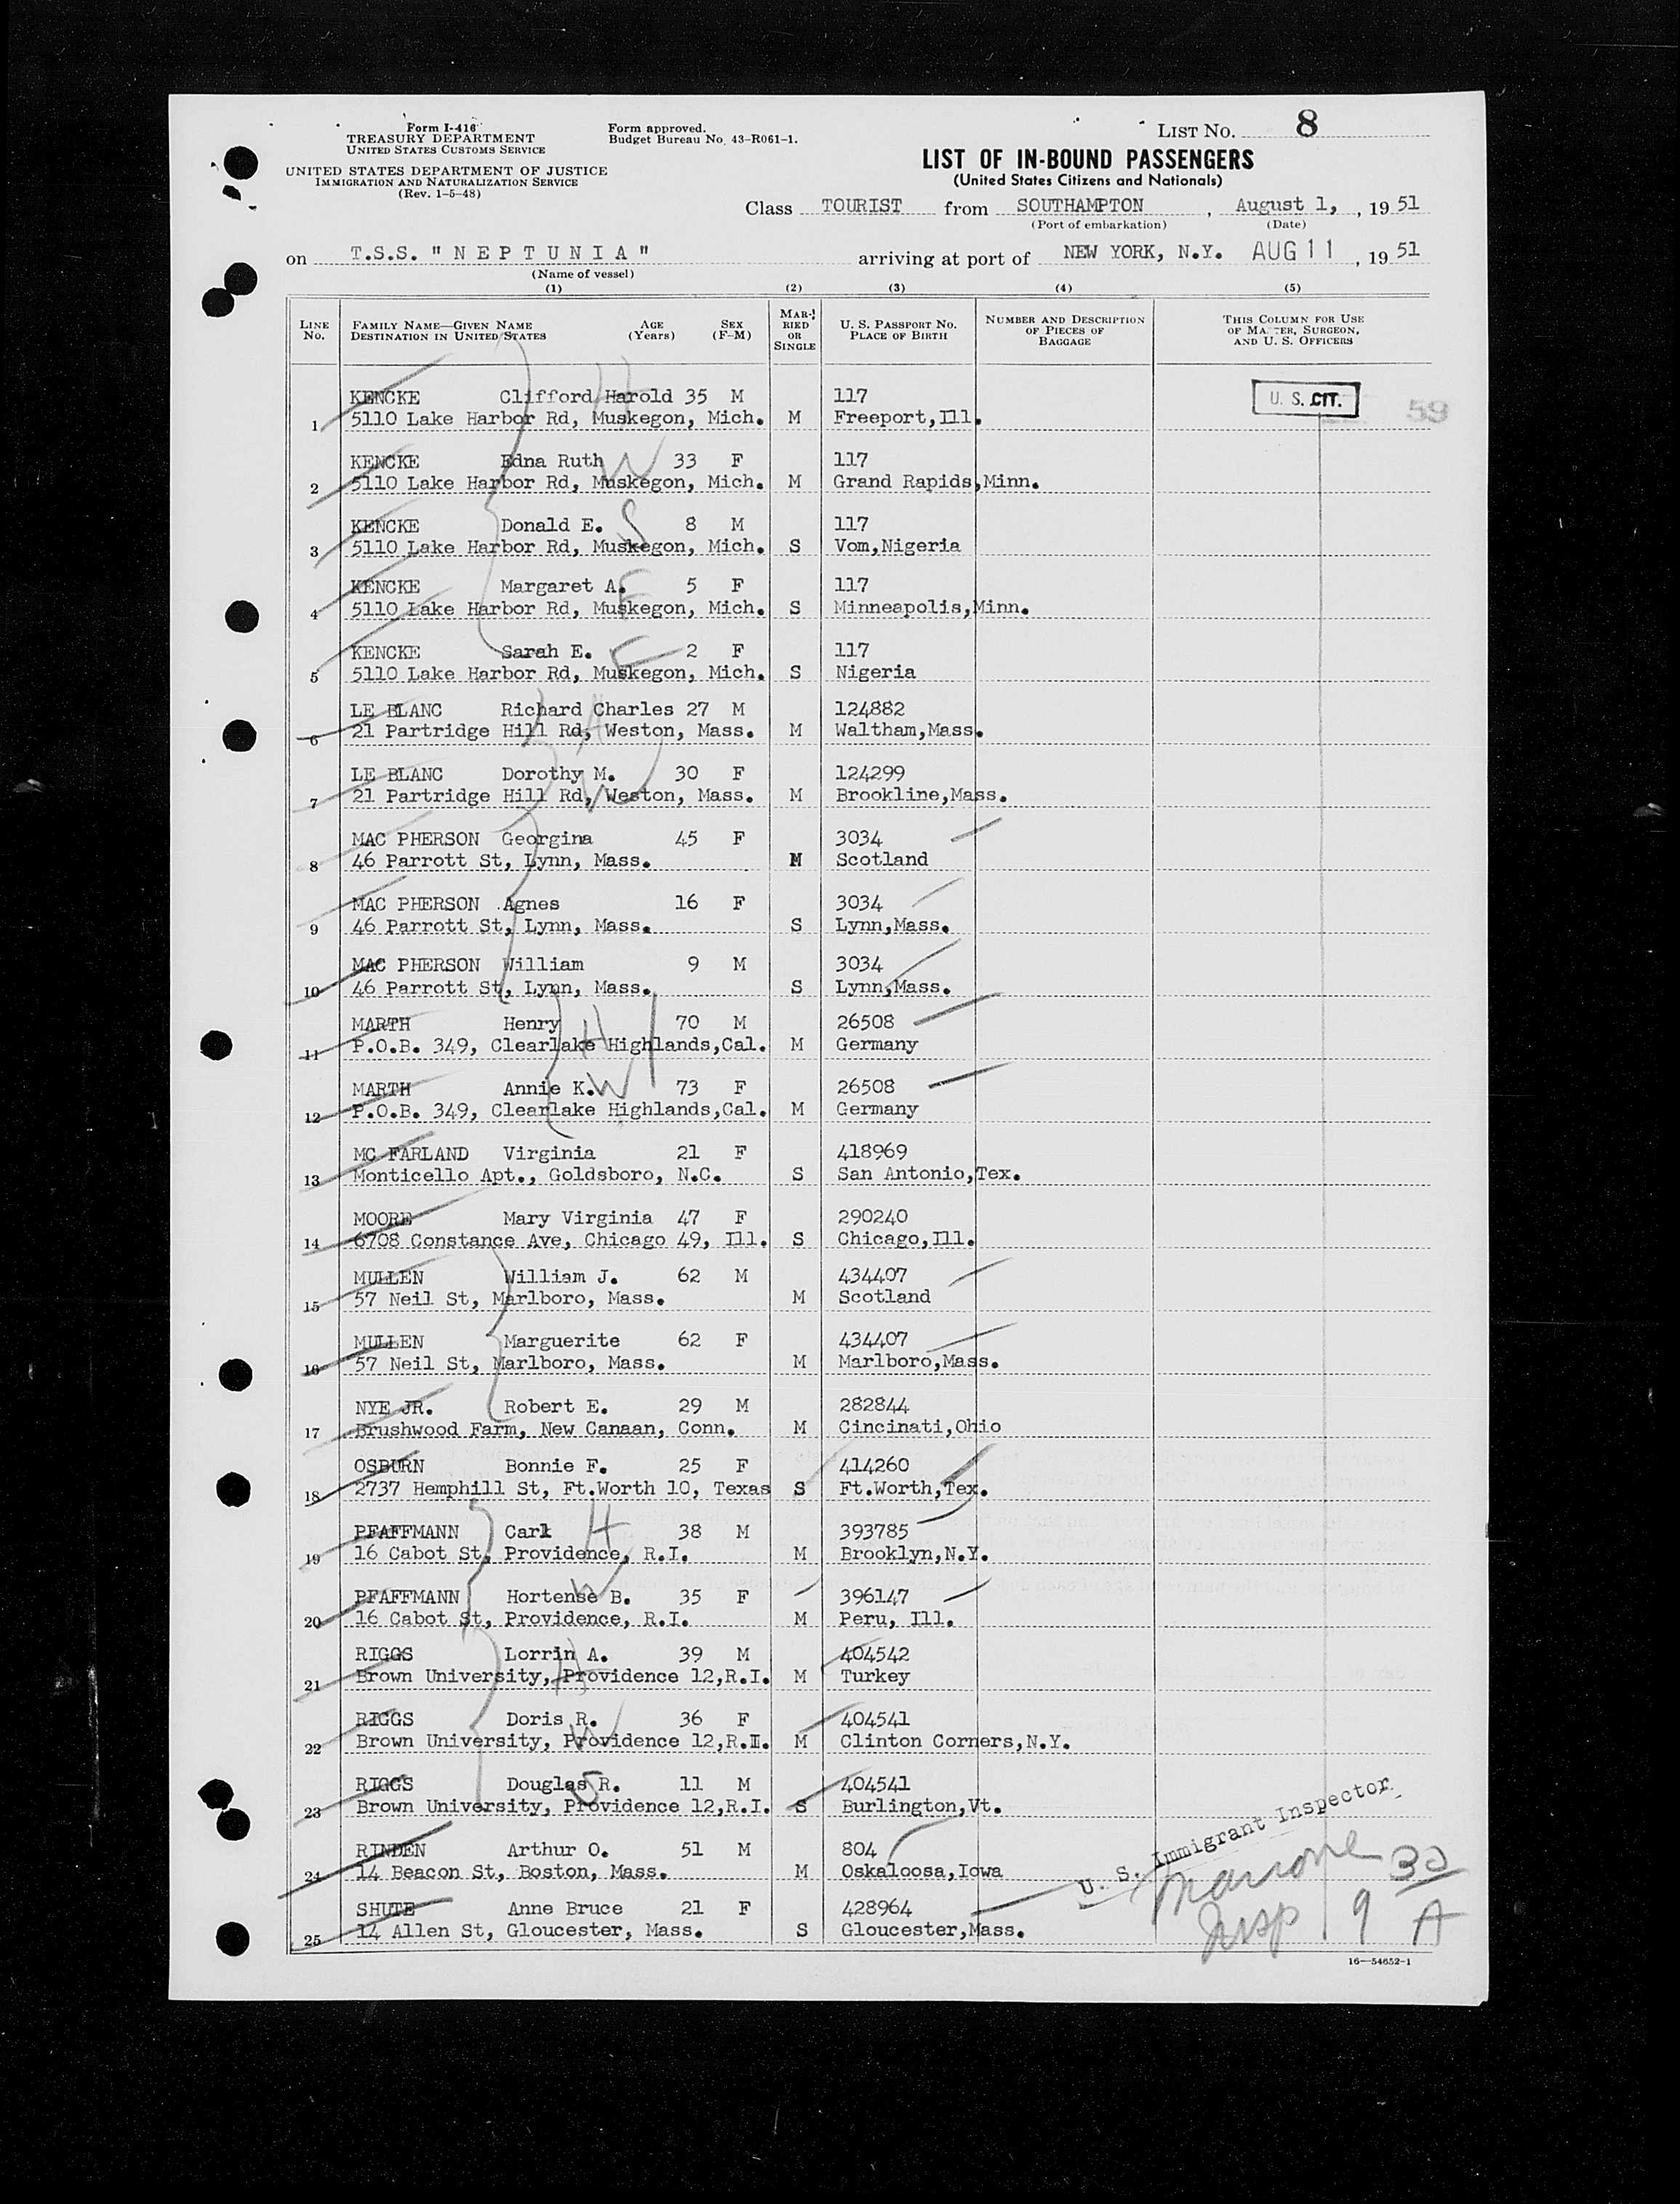 Form I-416
TREASURY DEPARTMENT
UNITED STATES CUSTOMS SERVICE
UNITED STATES DEPARTMENT OF JUSTICE
IMMIGRATION AND NATURALIZATION SERVICE
(Rev. 1-5-48)
Form approved.
Budget Bureau No. 43-R061-1.
LIST NO. 8
LIST OF IN-BOUND PASSENGERS
(United States Citizens and Nationals)
Class TOURIST from SOUTHAMPTON , August 1, , 19 51
(Port of embarkation) (Date)
on T.S.S. "NEPTUNIA" arriving at port of NEW YORK, N.Y. AUG 11 , 19 51
(Name of vessel)
(1) (2) (3) (4) (5)
LINE No. FAMILY NAME—GIVEN NAME DESTINATION IN UNITED STATES AGE (Years) SEX (F-M) MARRIED OR SINGLE U. S. PASSPORT NO. PLACE OF BIRTH NUMBER AND DESCRIPTION OF PIECES OF BAGGAGE THIS COLUMN FOR USE OF MASTER, SURGEON, AND U. S. OFFICERS
KENCKE Clifford Harold 35 M 117 U. S. CIT. 59
1 5110 Lake Harbor Rd, Muskegon, Mich. M Freeport,Ill.
KENCKE Edna Ruth W 33 F 117
2 5110 Lake Harbor Rd, Muskegon, Mich. M Grand Rapids,Minn.
KENCKE Donald E. S 8 M 117
3 5110 Lake Harbor Rd, Muskegon, Mich. S Vom,Nigeria
KENCKE Margaret A. 5 F 117
4 5110 Lake Harbor Rd, Muskegon, Mich. S Minneapolis,Minn.
KENCKE Sarah E. 2 F 117
5 5110 Lake Harbor Rd, Muskegon, Mich. S Nigeria
LE BLANC Richard Charles 27 M 124882
6 21 Partridge Hill Rd, Weston, Mass. M Waltham,Mass.
LE BLANC Dorothy M. 30 F 124299
7 21 Partridge Hill Rd, Weston, Mass. M Brookline,Mass.
MAC PHERSON Georgina 45 F 3034
8 46 Parrott St, Lynn, Mass. M Scotland
MAC PHERSON Agnes 16 F 3034
9 46 Parrott St, Lynn, Mass. S Lynn,Mass.
MAC PHERSON William 9 M 3034
10 46 Parrott St, Lynn, Mass. S Lynn,Mass.
MARTH Henry H 70 M 26508
11 P.O.B. 349, Clearlake Highlands,Cal. M Germany
MARTH Annie K. W 73 F 26508
12 P.O.B. 349, Clearlake Highlands,Cal. M Germany
MC FARLAND Virginia 21 F 418969
13 Monticello Apt., Goldsboro, N.C. S San Antonio,Tex.
MOORE Mary Virginia 47 F 290240
14 6708 Constance Ave, Chicago 49, Ill. S Chicago,Ill.
MULLEN William J. 62 M 434407
15 57 Neil St, Marlboro, Mass. M Scotland
MULLEN Marguerite 62 F 434407
16 57 Neil St, Marlboro, Mass. M Marlboro,Mass.
NYE JR. Robert E. 29 M 282844
17 Brushwood Farm, New Canaan, Conn. M Cincinati,Ohio
OSBURN Bonnie F. 25 F 414260
18 2737 Hemphill St, Ft.Worth 10, Texas S Ft.Worth,Tex.
PFAFFMANN Carl H 38 M 393785
19 16 Cabot St, Providence, R.I. M Brooklyn,N.Y.
PFAFFMANN Hortense B. W 35 F 396147
20 16 Cabot St, Providence, R.I. M Peru, Ill.
RIGGS Lorrin A. 39 M 404542
21 Brown University, Providence 12,R.I. H M Turkey
RIGGS Doris R. 36 F 404541
22 Brown University, Providence 12,R.I. W M Clinton Corners,N.Y.
RIGGS Douglas R. S 11 M 404541
23 Brown University, Providence 12,R.I. S Burlington,Vt.
RINDEN Arthur O. 51 M 804
24 14 Beacon St, Boston, Mass. M Oskaloosa,Iowa
SHUTE Anne Bruce 21 F 428964
25 14 Allen St, Gloucester, Mass. S Gloucester,Mass.
U. S. Immigrant Inspector
Insp 9 A
16—54652-1